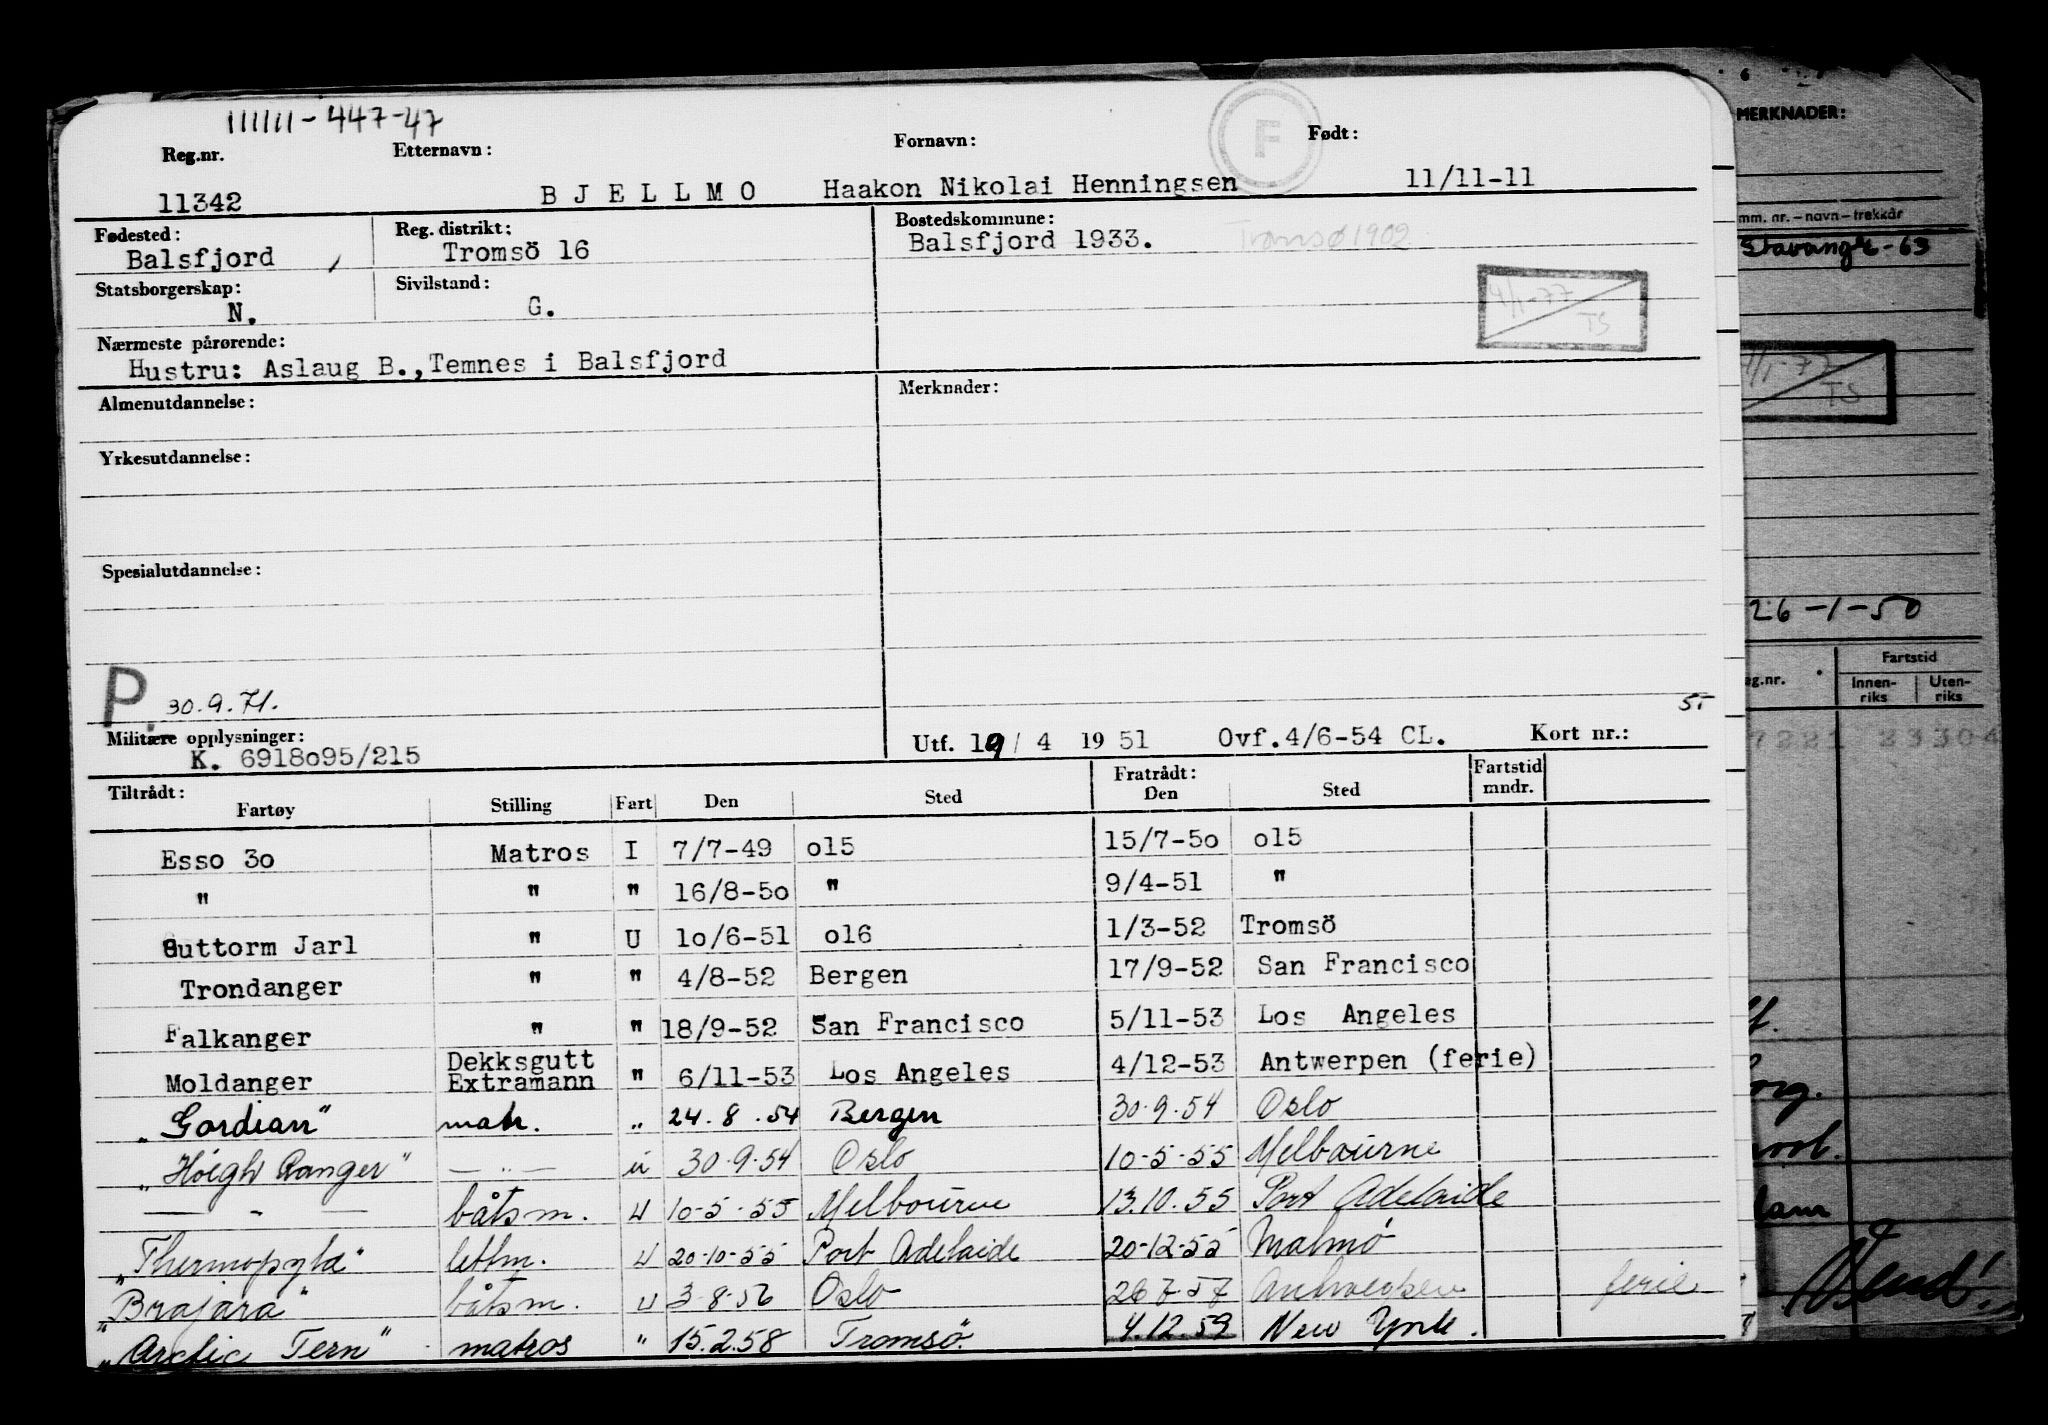 111111-447-47
Reg.nr. Etternavn: Fornavn: F Født:
11342 BJELLMO Haakon Nikolai Henningsen 11/11-11
Fødested: Reg. distrikt: Bostedskommune:
Balsfjord Tromsö 16 Balsfjord 1933. Tromsø 1902
Statsborgerskap: Sivilstand:
N. G. 4/1-77 TS
Nærmeste pårørende:
Hustru: Aslaug B.,Temnes i Balsfjord
Almenutdannelse: Merknader:
Yrkesutdannelse:
Spesialutdannelse:
P. 30.9.71.
Militære opplysninger: Utf. 19/4 1951 Ovf.4/6-54 CL. Kort nr.: 5-
K. 6918o95/215
Tiltrådt: Fratrådt: Fartstid
Fartøy Stilling Fart Den Sted Den Sted mndr.
Esso 3o Matros I 7/7-49 o15 15/7-5o o15
" " " 16/8-5o " 9/4-51 "
Guttorm Jarl " U 1o/6-51 o16 1/3-52 Tromsö
Trondanger " " 4/8-52 Bergen 17/9-52 San Francisco
Falkanger " " 18/9-52 San Francisco 5/11-53 Los Angeles
Moldanger Dekksgutt Extramann " 6/11-53 Los Angeles 4/12-53 Antwerpen (ferie)
„Gordian" matr. „ 24.8.54 Bergen 30.9.54 Oslo
„Höegh Ranger" — „ — u 30.9.54 Oslo 10-5-55 Melbourne
— " — båtsm. u 10-5-55 Melbourne 13.10.55 Port Adelaide
„Thermopylæ" lettm. u 20-10-55 Port Adelaide 20-12-55 Malmö
„Brajara" båtsm. u 3-8-56 Oslo 26-7-57 Antwerpen ferie
„Arctic Tern" matros " 15.2.58 Tromsö. 4.12.59 New York.
MERKNADER:
mm. nr. – navn – trekkår
Stavanger-63
4/1-77
TS
26-1-50
Fartstid
eg.nr. Innen-riks Uten-riks
7221 23304